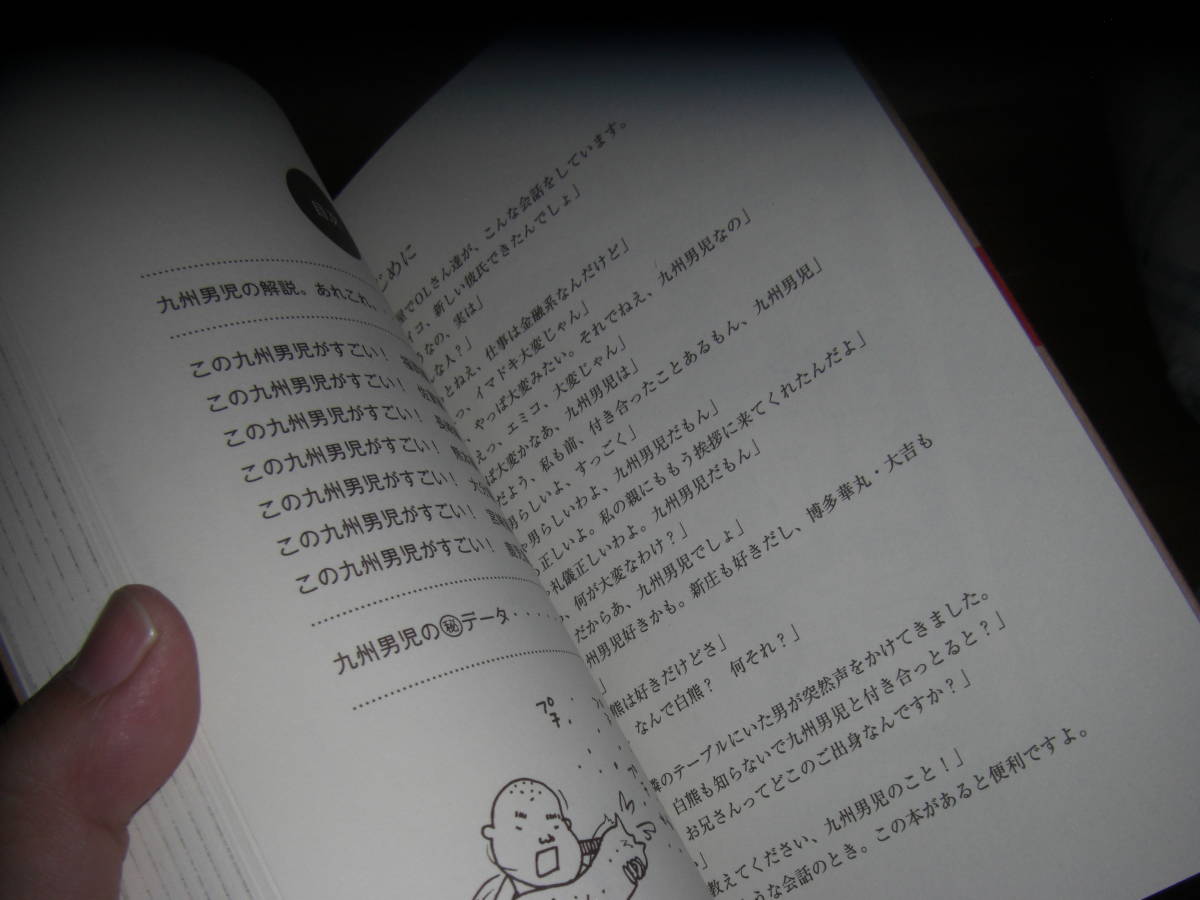 目次
九州男児の解説。あれこれ。
この九州男児がすごい！
この九州男児がすごい！
この九州男児がすごい！
この九州男児がすごい！
この九州男児がすごい！
この九州男児がすごい！
この九州男児がすごい！
九州男児の㊙データ
じめに
でOLさん達が、こんな会話をしています。
イコ、新しい彼氏できたんでしょ」
うなの、実は」
な人？」
とねえ、仕事は金融系なんだけど」
っ、イマドキ大変じゃん」
、やっぱ大変みたい。それでねえ、九州男児なの」
えっ、エミコ、大変じゃん」
ぱ大変かなあ、九州男児は」
だよう、私も前、付き合ったことあるもん、九州男児」
男らしいよ、すっごく」
や男らしいわよ、九州男児だもん」
も正しいよ。私の親にももう挨拶に来てくれたんだよ」
礼儀正しいわよ。九州男児だもん」
、何が大変なわけ？」
だからあ、九州男児でしょ」
州男児好きかも。新庄も好きだし、博多華丸・大吉も
」
熊は好きだけどさ」
なんで白熊？　何それ？」
隣のテーブルにいた男が突然声をかけてきました。
白熊も知らないで九州男児と付き合っとると？」
お兄さんってどこのご出身なんですか？」
」
教えてください、九州男児のこと！」
うな会話のとき。この本があると便利ですよ。
プ